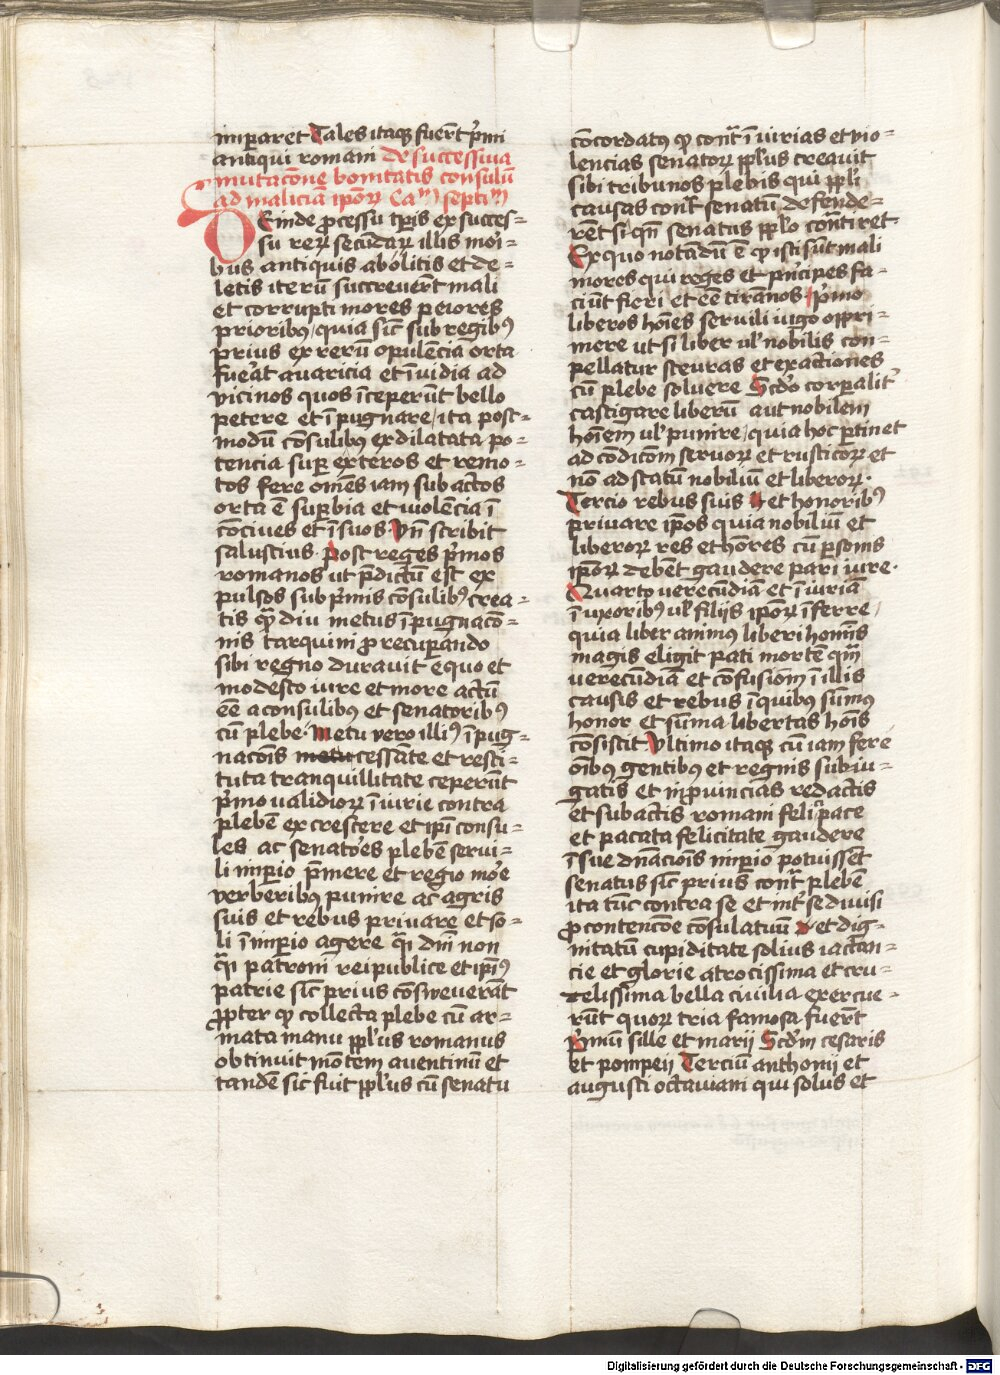 imparet Tales itaqꝫ fuer̄t p̄mi
antiqui romani de successiua
mutacōne bonitatis consulū
ad maliciā ip̄oꝝ Caᵐ septīᵐ
DEinde ꝓcessu tp̄ris ex succes=
su reꝝ secūdaꝝ illis mori=
bus antiquis abolitis et de=
letis iterū succreuer̄t mali
et corrupti mores peiores
prioribꝰ quia sic̄ sub regibꝰ
prius ex rerū opulēcia orta
fuer̄at auaricia et īuidia ad
vicinos quos īceperūt bello
petere et īpugnare / ita post=
modū cōsulibꝰ ex dilatata po=
tencia suꝑ exteros et remo=
tos fere om̄es iam subactos
orta ē suꝑbia et violēcia ī
cōciues et ī suos Vn̄ scribit
salustius Post reges p̄mos
romanos ut p̄dictū est ex
pulsos sub p̄mis cōsulibꝰ crea=
tis qm̄ diu metus īpugnacō=
nis tarquini ꝓ recuꝑando
sibi regno durauit equo et
modesto iure et more actū
ēe a consulibꝰ et senatoribꝰ
cū plebe. Metu vero illiꝰ īpug=
nacōis metu cessāte et resti=
tuta tranquillitate ceperūt
p̄mo validioꝝ īiurie contra
plebē excrescere et ip̄i consu=
les ac senatores plebē serui=
li imꝑio p̄mere et regio more
verberibus punire ac agris
suis et rebus priuare et so=
li ī imꝑio agere qͣi dn̄i non
qͣi patroni reipublice et ip̄iꝰ
patrie sic̄ prius cōsweuerāt
ꝓpter qꝫ collecta plebe cū ar=
mata manu ppl̄us romanus
obtinuit mōtem auentinū et
tandē sic fuit ppl̄us cū senatu
cōcordatꝰ qꝫ cont̄ īiurias et vio=
lencias senatoꝝ ppl̄us creauit
sibi tribunos plebis qui ppl̄i
causas cont̄ senatū defende=
rēt si qn̄ senatus ppl̄o cont̄iret
Ex quo notādū ē qꝫ isti sūt mali
mores qui reges et p̄ncipes fa=
ciūt fieri et ēe tirānos p̄mo
liberos hōies seruili iugo oppri=
mere ut si liber ul̓ nobilis con=
pellatur steuras et exactiones
cū plebe soluere Scd̄o corꝑalit̓
castigare liberū aut nobilem
hōiem ul̓ punire / quia hoc ꝑtinet
ad cōdicōm seruoꝝ et rusticoꝝ et
nō ad statū nobiliū et liberoꝝ.
Tercio rebus suis et honoribꝰ
priuare ip̄os quia nobiliū et
liberoꝝ res et hōres cū ꝑsonis
ip̄oꝝ debēt gaudere pari iure.
Quarto verecūdiā et īiuriā
ī vxoribꝰ ul̓ filijs ip̄oꝝ īferre /
quia liber animꝰ liberi homīs
magis eligit pati mortē qm̄
verecūdiā et cōfusiōm ī illis
causis et rebus ī quibꝰ sūmꝰ
honor et sūma libertas hōis
cōsistit Vltimo itaqꝫ cū iam fere
oībꝰ gentibꝰ et regnis subiu=
gatis et ī ꝓuincias redactis
et subactis romani felici pace
et pacata felicitate gaudere
ī sue dn̄acōis imꝑio potuissēt
senatus sic̄ prius cont̄ plebē
ita tūc contra se et int̓ se diuisi
ꝓ contencōe cōsulatuū et dig=
nitatū cupiditate solius iactan=
cie et glorie atrocissima et cru=
delissima bella ciuilia exercue=
rūt quoꝝ tria famosa fuer̄t
p̄mū sille et marii Scd̄m cesaris
et pompeij Terciū anthonii et
augusti octauiani qui solus et
Digitalisierung gefördert durch die Deutsche Forschungsgemeinschaft - DFG